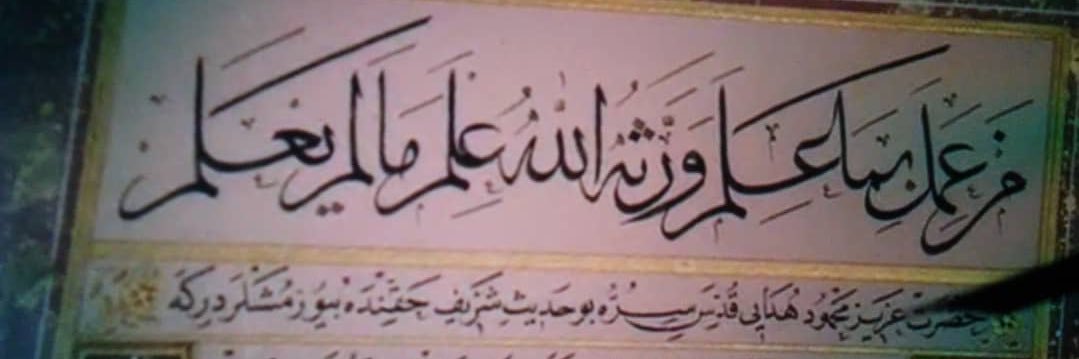 مَنْ عَمِلَ بِمَا عَلِمَ وَرَّثَهُ اللهُ عِلْمَ مَا لَمْ يَعْلَمْ
حضرت عزيز محمود هدايى قدس سره بو حديث شريف حقنده بيورمشلردركه